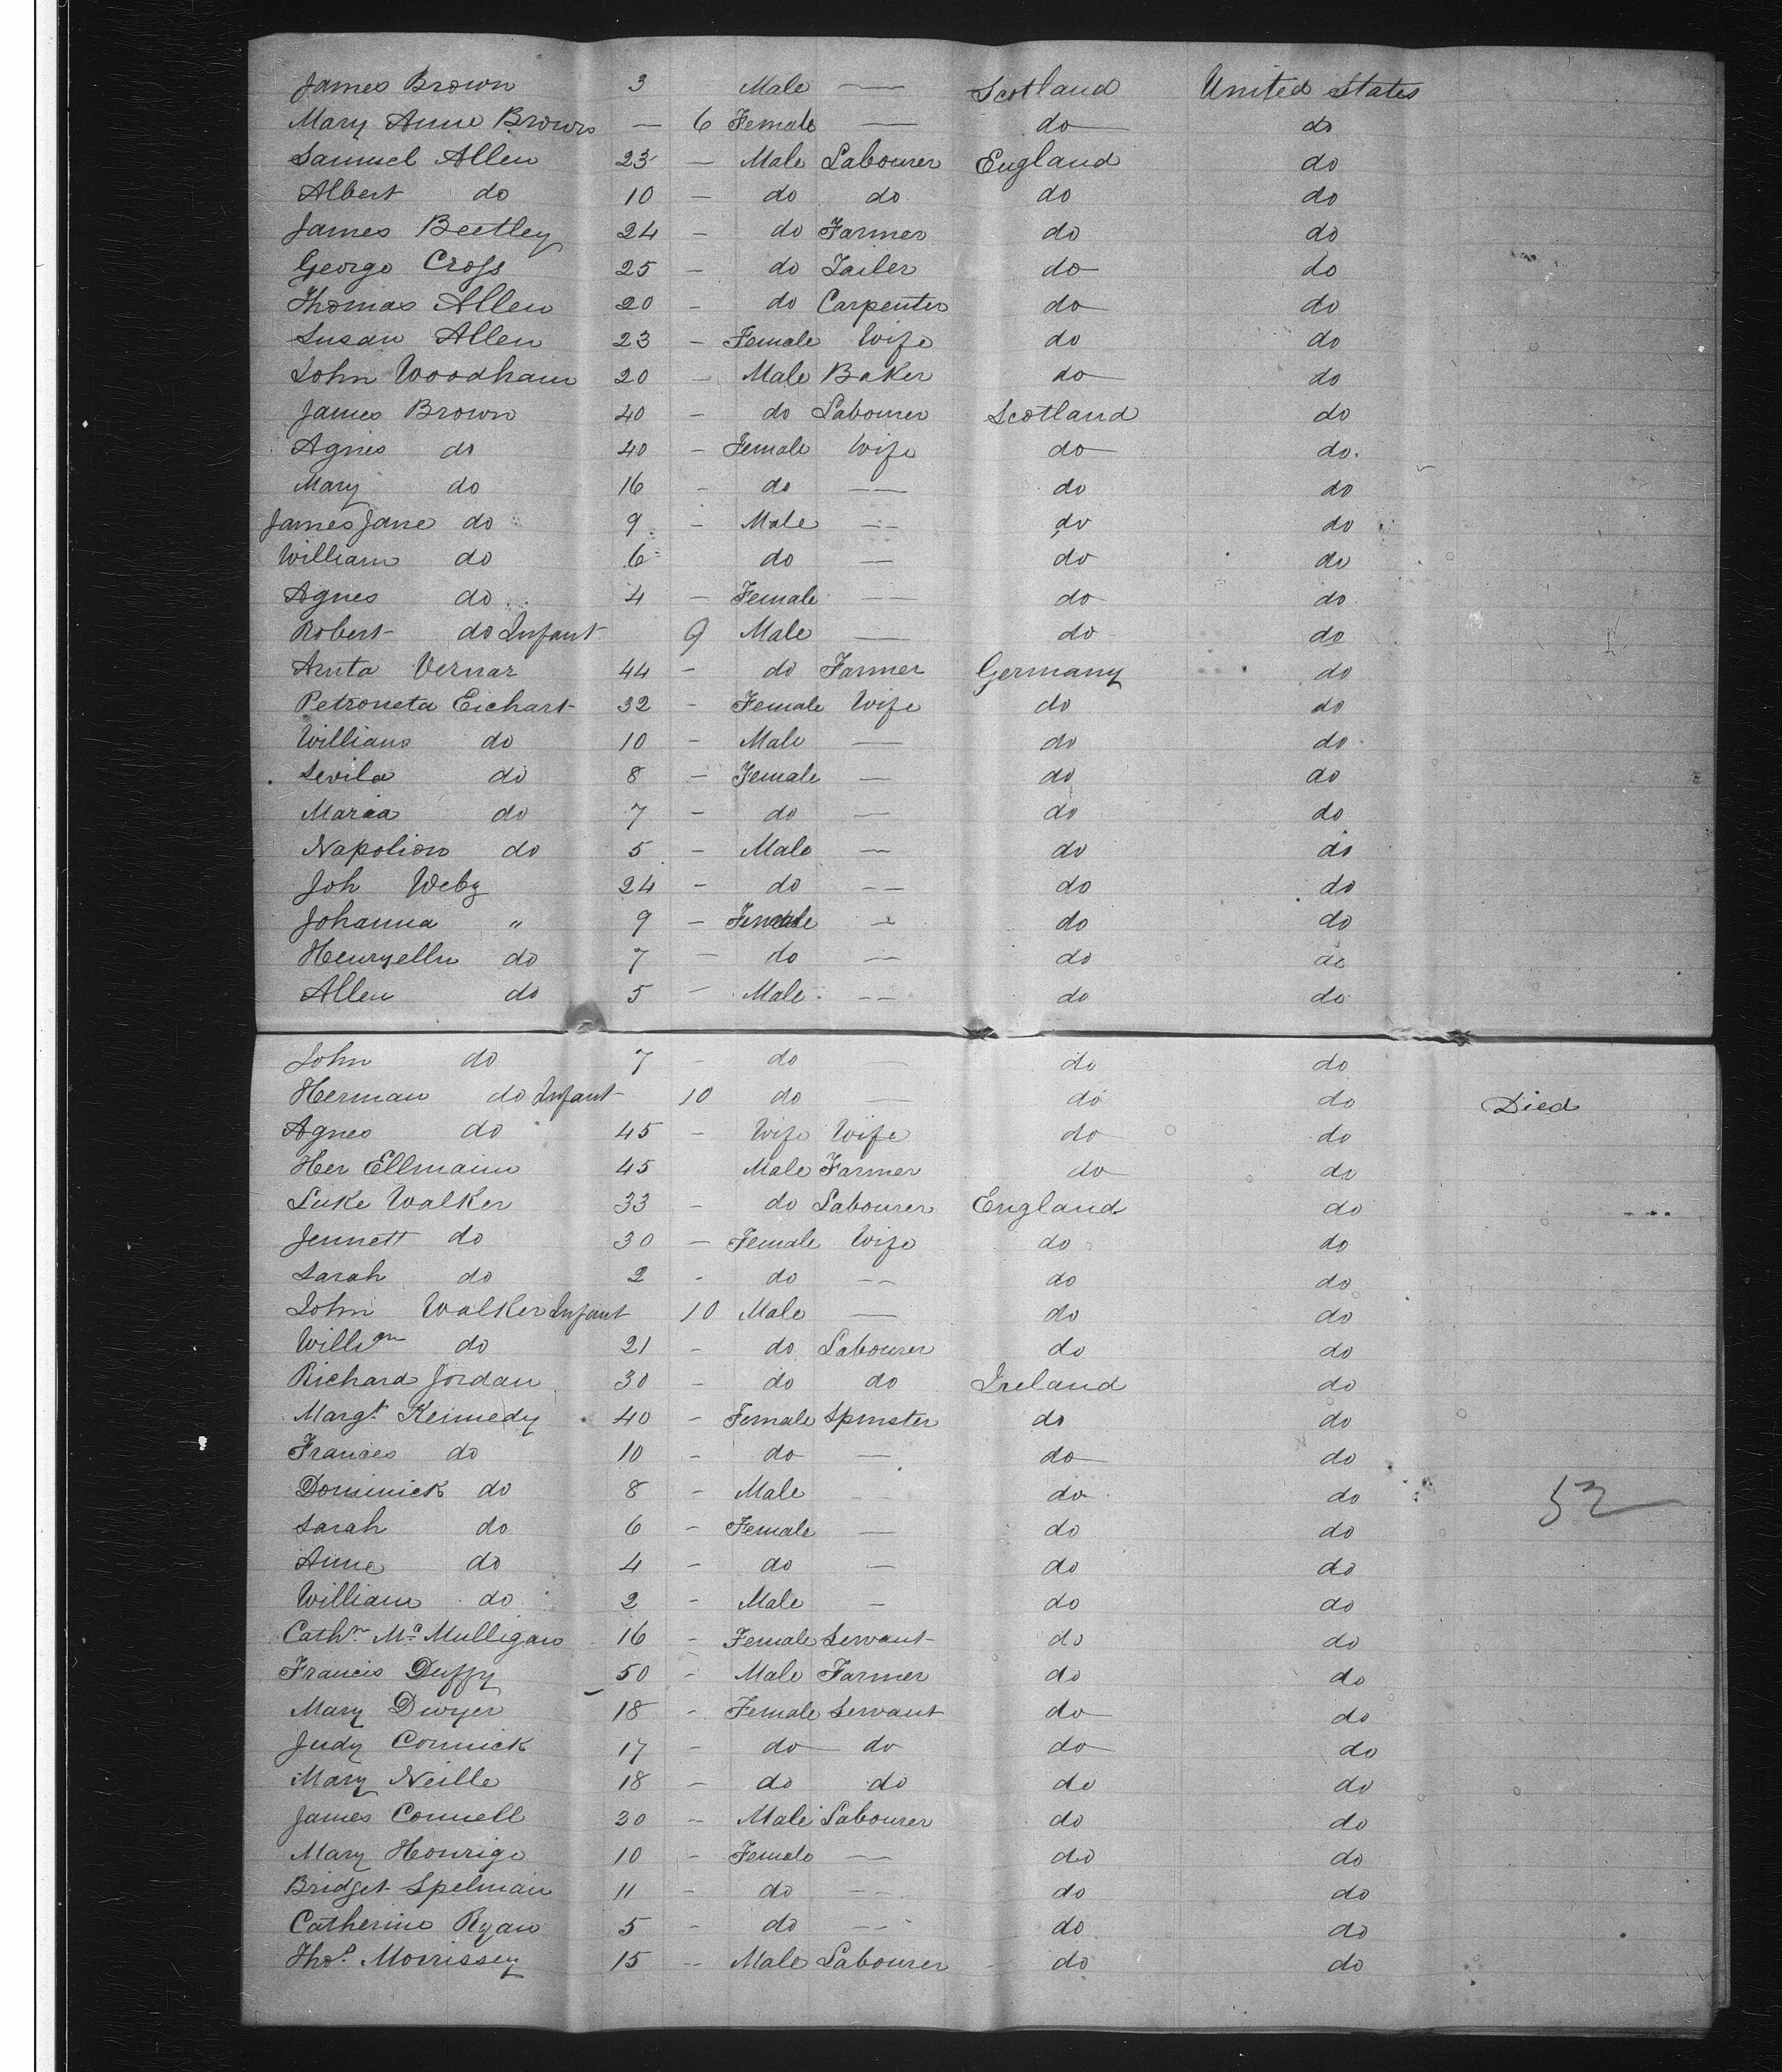 James Brown 3 Male — Scotland United States
Mary Anne Brown — 6 Female — do do
Samuel Allen 23 — Male Labourer England do
Albert do 10 — do do do do
James Beetley 24 — do Farmer do do
George Cross 25 — do Tailer do do
Thomas Allen 20 — do Carpenter do do
Susan Allen 23 — Female Wife do do
John Woodham 20 — Male Baker do do
James Brown 40 — do Labourer Scotland do
Agnes do 40 — Female Wife do do.
Mary do 16 — do — do do
James Jane do 9 — Male — do do
William do 6 do — do do
Agnes do 4 — Female — do do
Robert do Infant 9 Male — do do
Anta Vernar 44 — do Farmer Germany do
Petroneta Eichart 32 — Female Wife do do
William do 10 — Male — do do
Sevila do 8 — Female — do do
Maria do 7 — do — do do
Napolion do 5 — Male — do do
Joh Weby 24 — do — do do
Johanna " 9 — Female — do do
Henryelln do 7 — do — do do
Allen do 5 — Male — do do
John do 7 — do — do do
Herman do Infant 10 do — do do Died
Agnes do 45 — Wife Wife do do
Her Ellmann 45 Male Farmer do do
Luke Walker 33 — do Labourer England do
Jennett do 30 — Female Wife do do
Sarah do 2 — do — do do
John Walker Infant 10 Male — do do
Willm do 21 — do Labourer do do
Richard Jordan 30 — do do Ireland do
Margt. Kennedy 40 — Female Spinster do do
Frances do 10 — do — do do
Dominick do 8 — Male — do do 52
Sarah do 6 — Female — do do
Anne do 4 — do — do do
William do 2 — Male — do do
Cathn. Mc Mulligan 16 — Female Servant do do
Francis Duffy 50 — Male Farmer do do
Mary Dwyer 18 — Female Servant do do
Judy Cormick 17 — do do do do
Mary Neille 18 — do do do do
James Connell 30 — Male Labourer do do
Mary Honrigo 10 — Female — do do
Bridget Spelman 11 — do — do do
Catherine Ryan 5 — do — do do
Thos. Morrissey 15 — Male Labourer do do